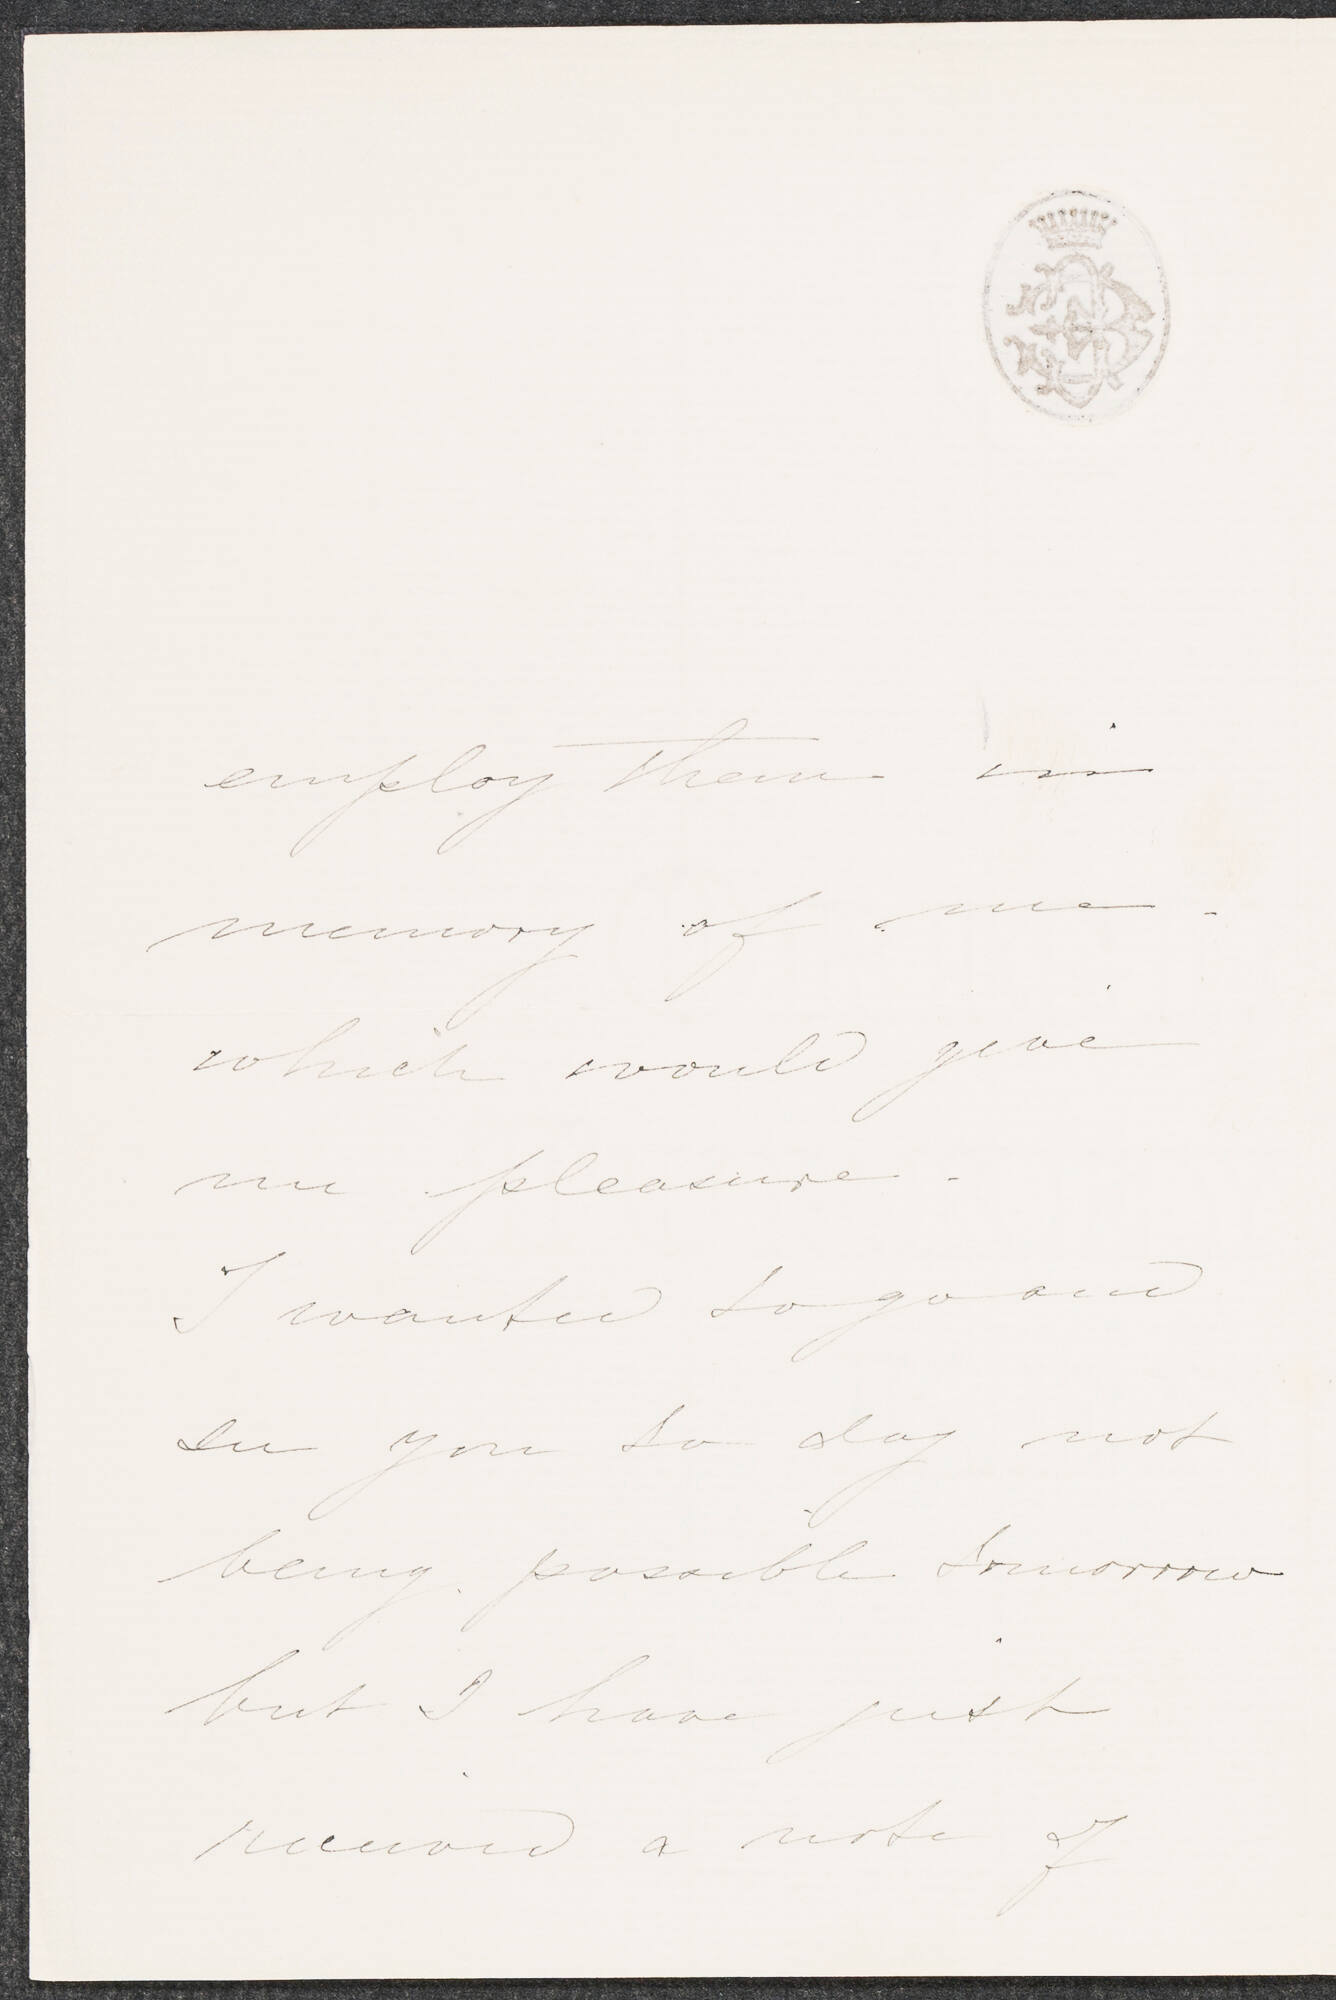 employ them in
memory of me -
which would give
me pleasure -
I wanted to go and
see you to day not
being possible tomorrow
but I have just
received a note of